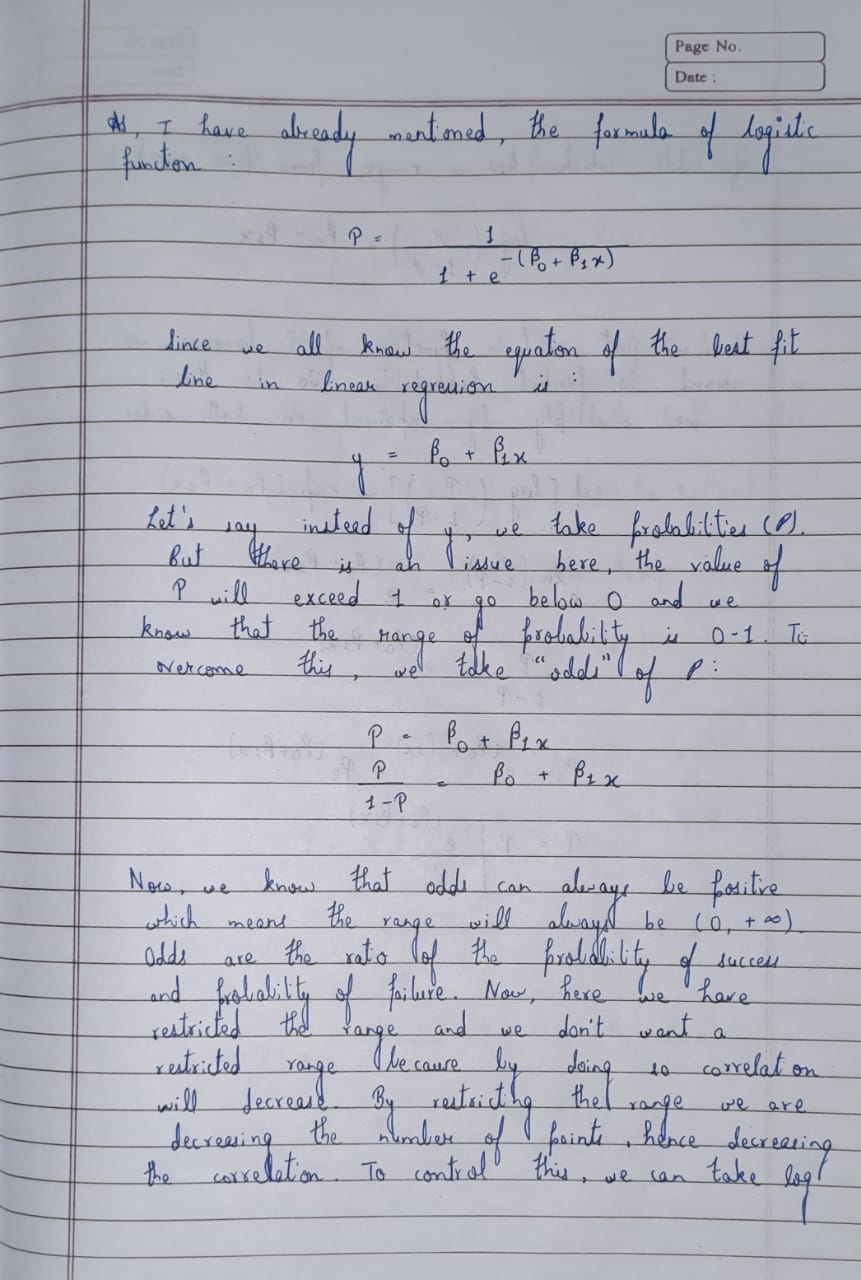 Page No.
Date :
As, I have already mentioned, the formula of logistic
function :
P = 1 / (1 + e^-(β0 + β1x))
Since we all know the equation of the best fit
line in linear regression is :
y = β0 + β1x
Let's say instead of y, we take probabilities (P).
But there is an issue here, the value of
P will exceed 1 or go below 0 and we
know that the range of probability is 0-1. To
overcome this, we take "odds" of P:
P = β0 + β1x
P / (1-P) = β0 + β1x
Now, we know that odds can always be positive
which means the range will always be (0, +∞).
Odds are the ratio of the probability of success
and probability of failure. Now, here we have
restricted the range and we don't want a
restricted range because by doing so correlation
will decrease. By restricting the range we are
decreasing the number of points, hence decreasing
the correlation. To control this, we can take log